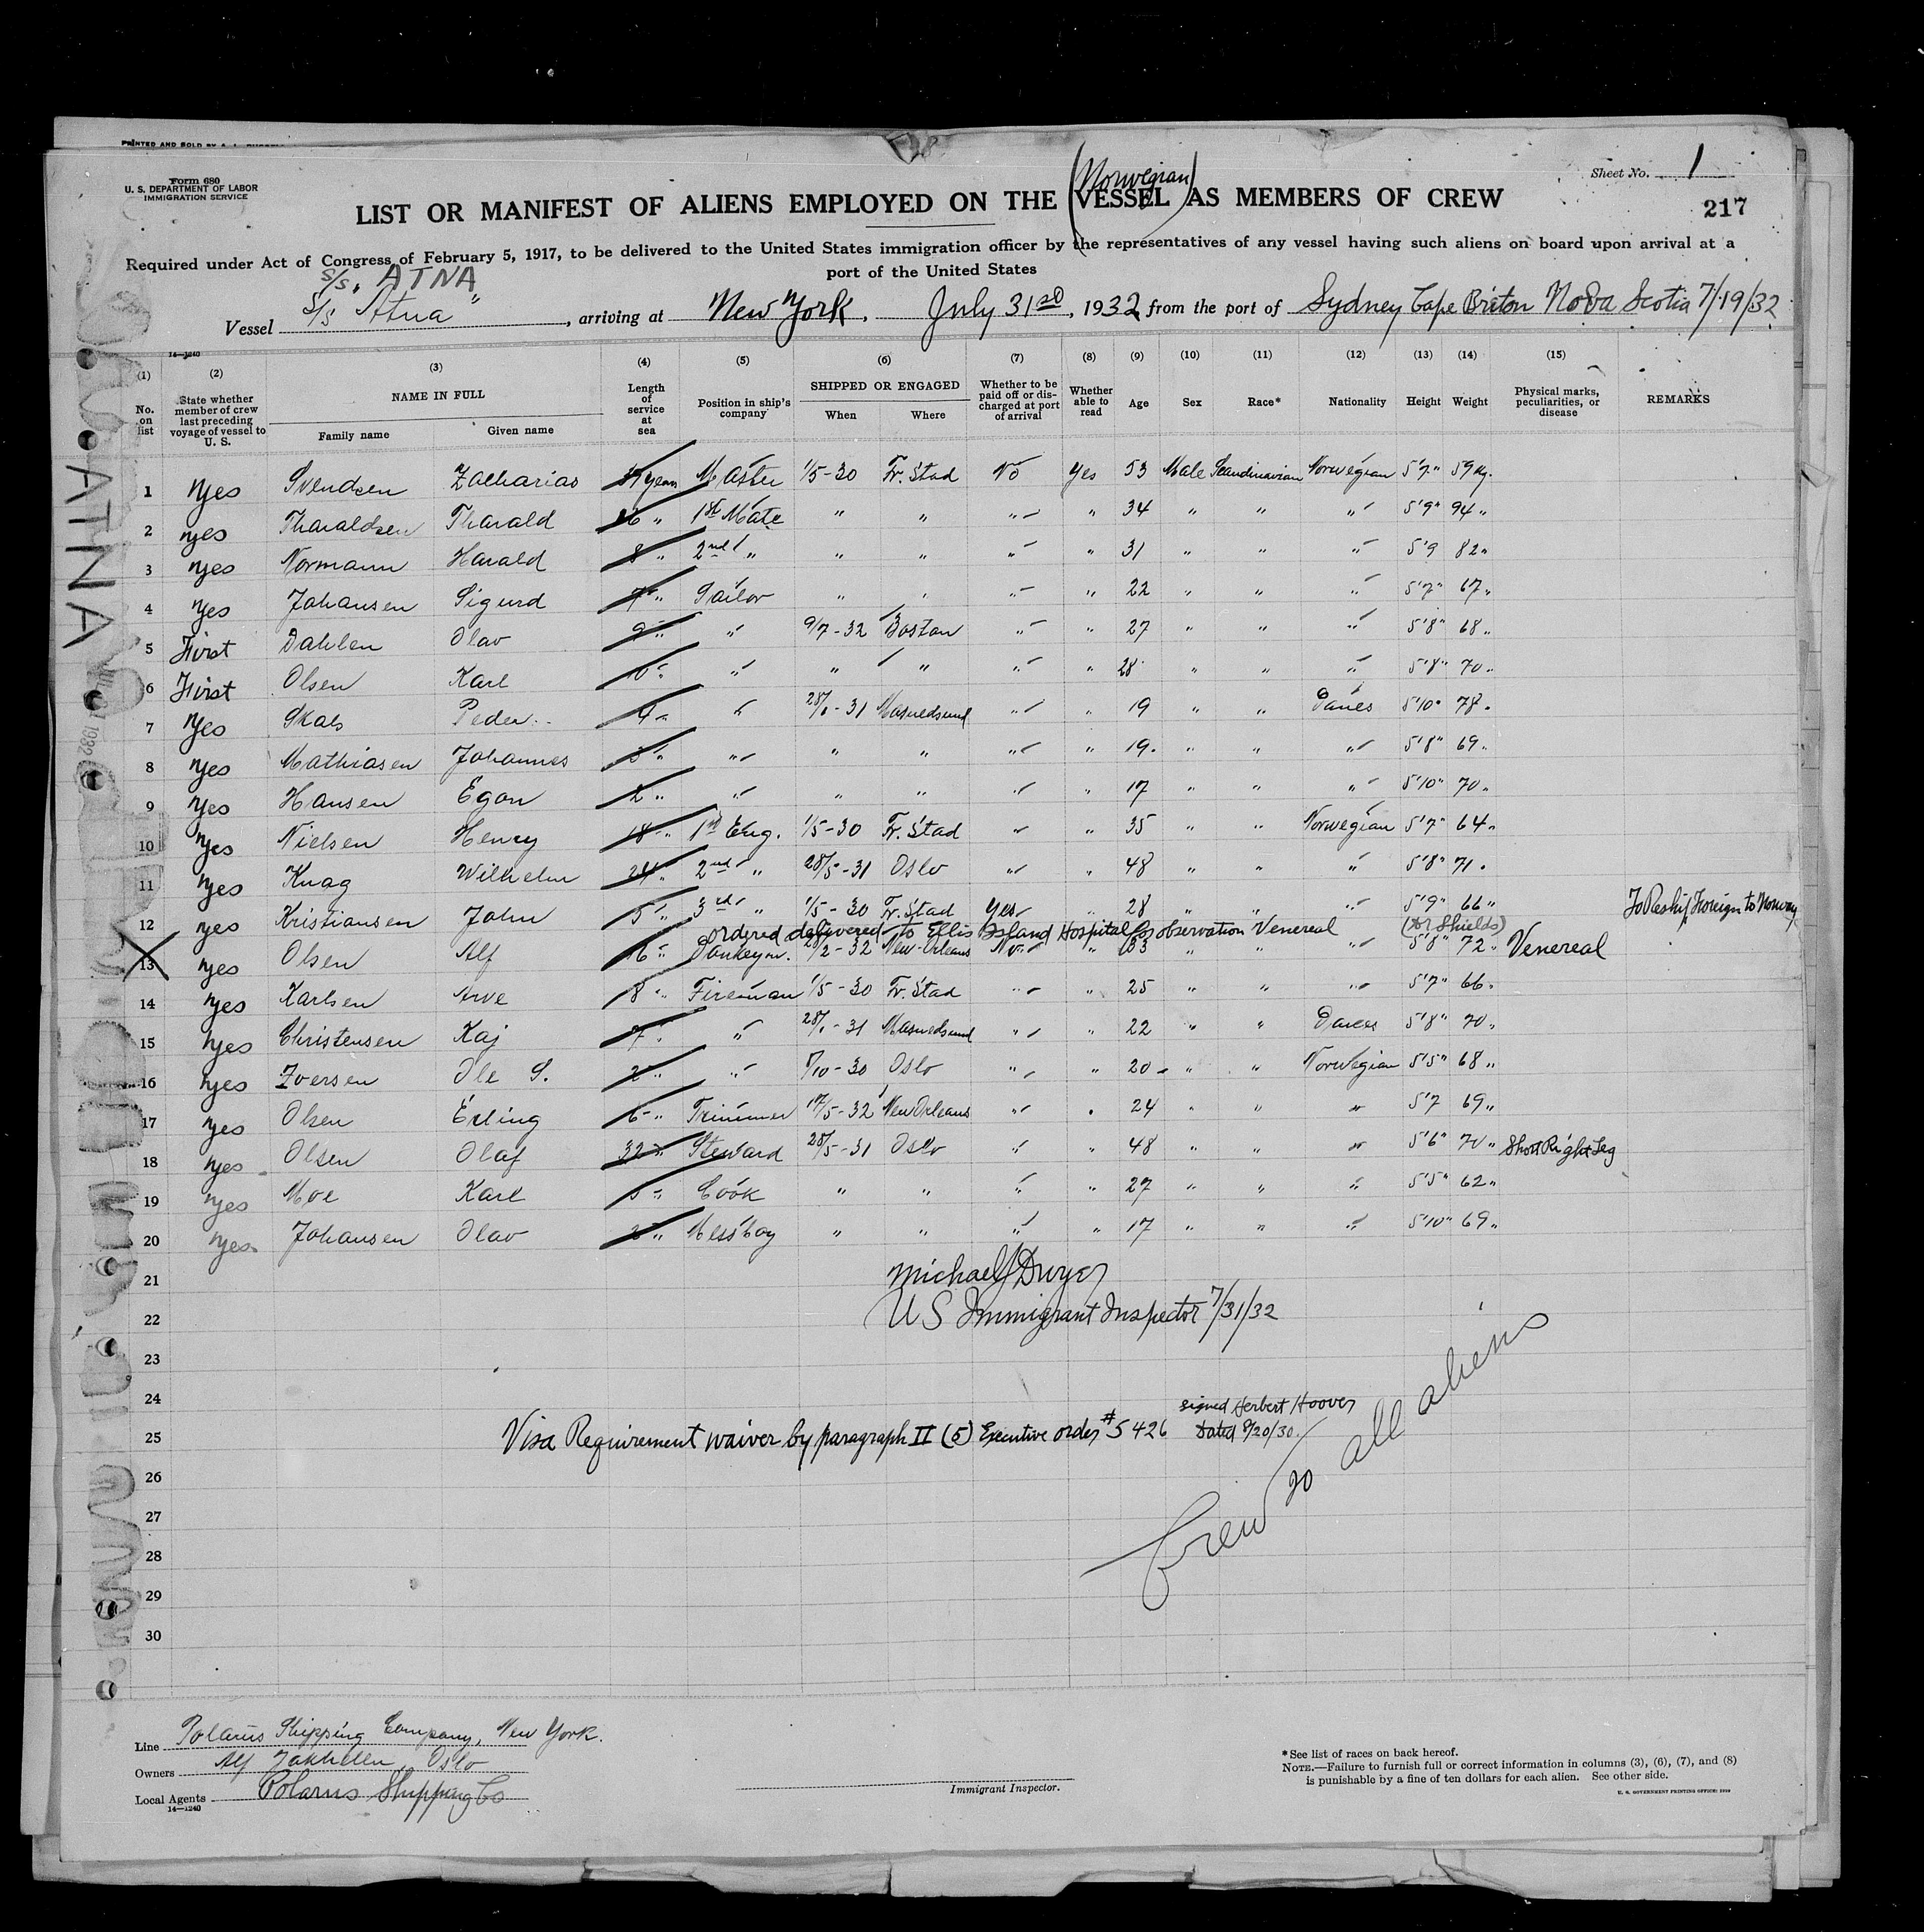 PRINTED AND SOLD BY A. L.
Form 680
U. S. DEPARTMENT OF LABOR
IMMIGRATION SERVICE
Sheet No. 1
(Norwegian)
LIST OR MANIFEST OF ALIENS EMPLOYED ON THE VESSEL AS MEMBERS OF CREW
217
Required under Act of Congress of February 5, 1917, to be delivered to the United States immigration officer by the representatives of any vessel having such aliens on board upon arrival at a
port of the United States
S/s. ATNA
Vessel S/s Atna", arriving at New York. July 31st, 1932 from the port of Sydney Cape Briton Nova Scotia 7/19/32
14—1240
(1) (2) (3) (4) (5) (6) (7) (8) (9) (10) (11) (12) (13) (14) (15)
No. on list
State whether member of crew last preceding voyage of vessel to U. S.
NAME IN FULL
Family name
Given name
Length of service at sea
Position in ship's company
SHIPPED OR ENGAGED
When
Where
Whether to be paid off or discharged at port of arrival
Whether able to read
Age
Sex
Race*
Nationality
Height
Weight
Physical marks, peculiarities, or disease
REMARKS
ATNA
1 Yes Svendsen Zacharias years Master 1/5-30 Fr. Stad No Yes 53 Male Scandinavian Norwegian 5'7" 59 Kg.
2 Yes Tharaldsen Tharald 16 " 1st Mate " " " " 34 " " " 5'9" 94 "
3 Yes Normann Harald 8 " 2nd " " " " " 31 " " " 5'9 82 "
4 Yes Johansen Sigurd 7 " Sailor " " " " 22 " " " 5'7" 67 "
5 First Dahlen Olav 9 " " 9/7-32 Boston " " 27 " " " 5'8" 68 "
6 First Olsen Karl " " " " " " 28 " " " 5'8" 70 "
7 Yes Skals Peder 4 " " 28/1-31 Masnedsund " " 19 " " Danes 5'10" 78 "
8 Yes Mathiasen Johannes 3 " " " " " " 19 " " " 5'8" 69 "
9 Yes Hansen Egon 2 " " " " " " 17 " " " 5'10" 70 "
10 Yes Nielsen Henry 18 " 1st Eng. 1/5-30 Fr. Stad " " 35 " " Norwegian 5'7" 64 "
11 Yes Knag Wilhelm 24 " 2nd " 28/5-31 Oslo " " 48 " " " 5'8" 71 "
12 Yes Kristiansen John 5 " 3rd " 1/5-30 Fr. Stad Yes " 28 " " " 5'9" 66 " To Reship Foreign to Norway
ordered delivered to Ellis Island Hospital for observation Venereal (Dr Shields)
13 Yes Olsen Alf 16 " Donkeym. 28/2-32 New-Orleans No " 33 " " " 5'8" 72 " Venereal
14 Yes Karlsen Arve 8 " Fireman 1/5-30 Fr. Stad " " 25 " " " 5'7" 66 "
15 Yes Christensen Kaj 7 " " 28/1-31 Masnedsund " " 22 " " Danes 5'8" 70 "
16 Yes Iversen Ole S. 2 " " /10-30 Oslo " " 20 " " Norwegian 5'5" 68 "
17 Yes Olsen Erling 6 " Trimmer 17/5-32 New Orleans " " 24 " " " 5'7 69 "
18 Yes Olsen Olaf 32 " Steward 28/5-31 Oslo " " 48 " " " 5'6" 70 " Short Right Leg
19 Yes Moe Karl 5 " Cook " " " " 27 " " " 5'5" 62 "
20 Yes Johansen Olav 2 " Messboy " " " " 17 " " " 5'10" 69 "
21 Michael J Dwyer
22 US Immigrant Inspector 7/31/32
23
24 signed Herbert Hoover
25 Visa Requirement waiver by paragraph II (5) Executive order #5426 Dated 8/20/30.
26
Crew 20 all aliens
27
28
29
30
Line Polarus Shipping Company, New York.
Owners Alf Zakhellen, Oslo
Local Agents Polarus Shipping Co
14—1240
Immigrant Inspector.
*See list of races on back hereof.
NOTE.—Failure to furnish full or correct information in columns (3), (6), (7), and (8)
is punishable by a fine of ten dollars for each alien. See other side.
U. S. GOVERNMENT PRINTING OFFICE: